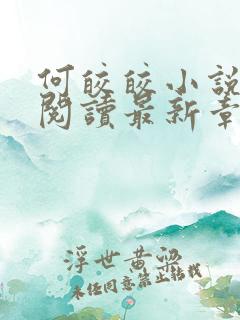 何皎皎小說
閱讀最新章
浮世黃粱
未任同意禁止轉載